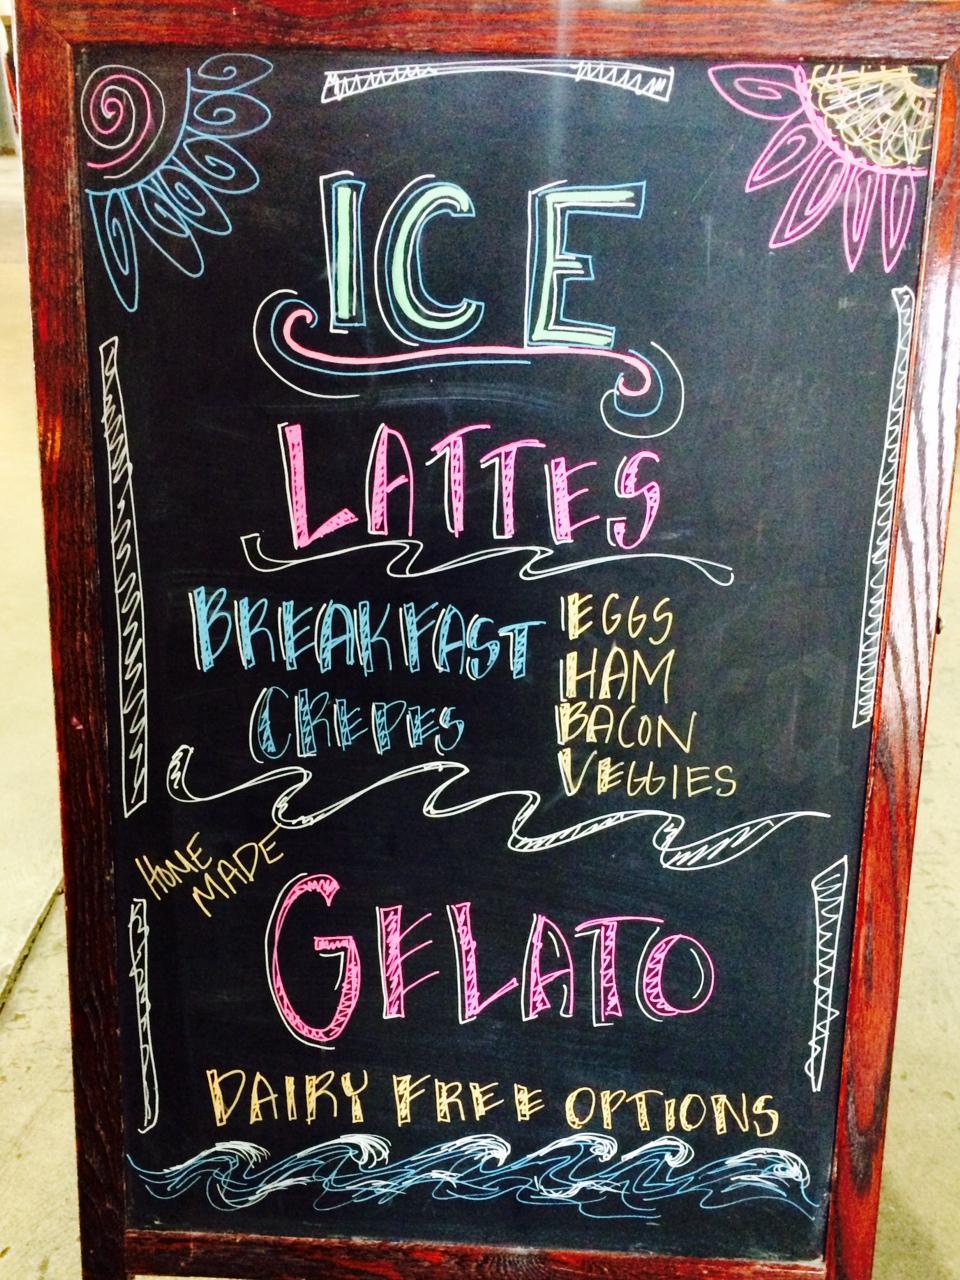 ICE
LATTES
BREAKFAST
CREPES
EGGS
HAM
BACON
VEGGIES
HOME
MADE
GELATO
DAIRY FREE OPTIONS